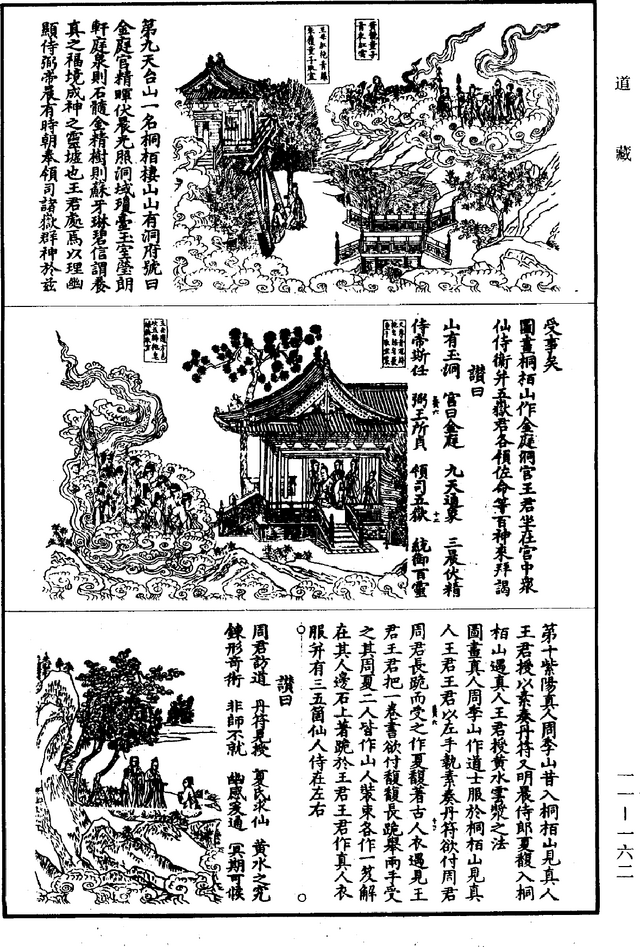 道藏
第九天台山一名桐栢棲山山有洞府號曰
金庭宮精暉伏晨光照洞域瓊臺玉室瑩朗
軒庭泉則石髓金精樹則蘇牙琳碧信謂養
真之福境成神之靈墟也王君處焉以理幽
顯侍弼帝晨有時朝奏領司諸嶽群神於茲
受事矣
圖畫桐栢山作金庭洞宮王君坐在宮中衆
仙侍衛并五嶽君各領佐命等百神來拜謁
讚曰
山有玉洞 宮曰金庭 九天通象 三晨伏精
侍帝斯任 弼王所貞 領司五嶽 統御百靈
第十紫陽真人周季山昔入桐栢山見真人
王君授以素奏丹符又明晨侍郎夏馥入桐
栢山遇真人王君授黃水雲漿之法
圖畫真人周季山作道士服於桐栢山見真
人王君王君以左手執素奏丹符欲付周君
周君長跪而受之作夏馥著古人衣遇見王
君王君把一卷書欲付馥馥長跪舉兩手受
之其周夏二人皆作山人裝束各作一笈解
在其人邊石上著跪於王君王君作真人衣
服并有三五箇仙人侍在左右
讚曰
周君訪道 丹符見授 夏氏求仙 黃水之究
鍊形奇術 非師不就 幽感爰通 冥期可候
一一—一六二